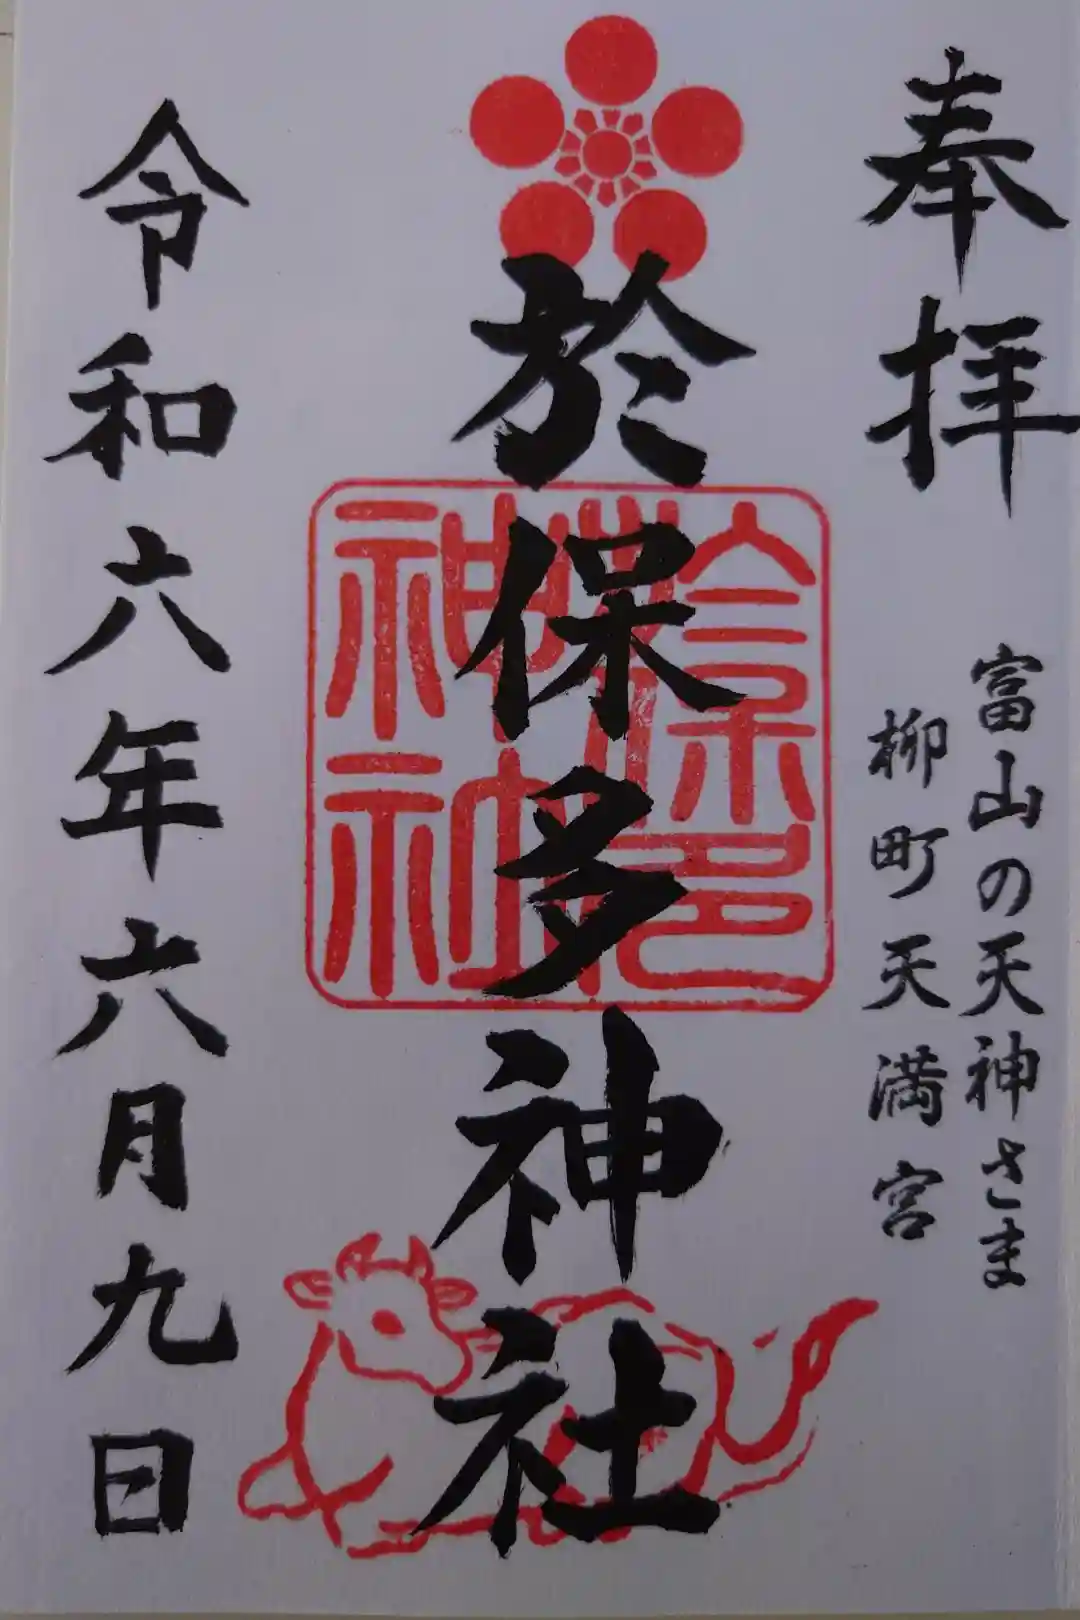 奉拝
富山の天神さま
柳町天満宮
於保多神社
令和六年六月九日